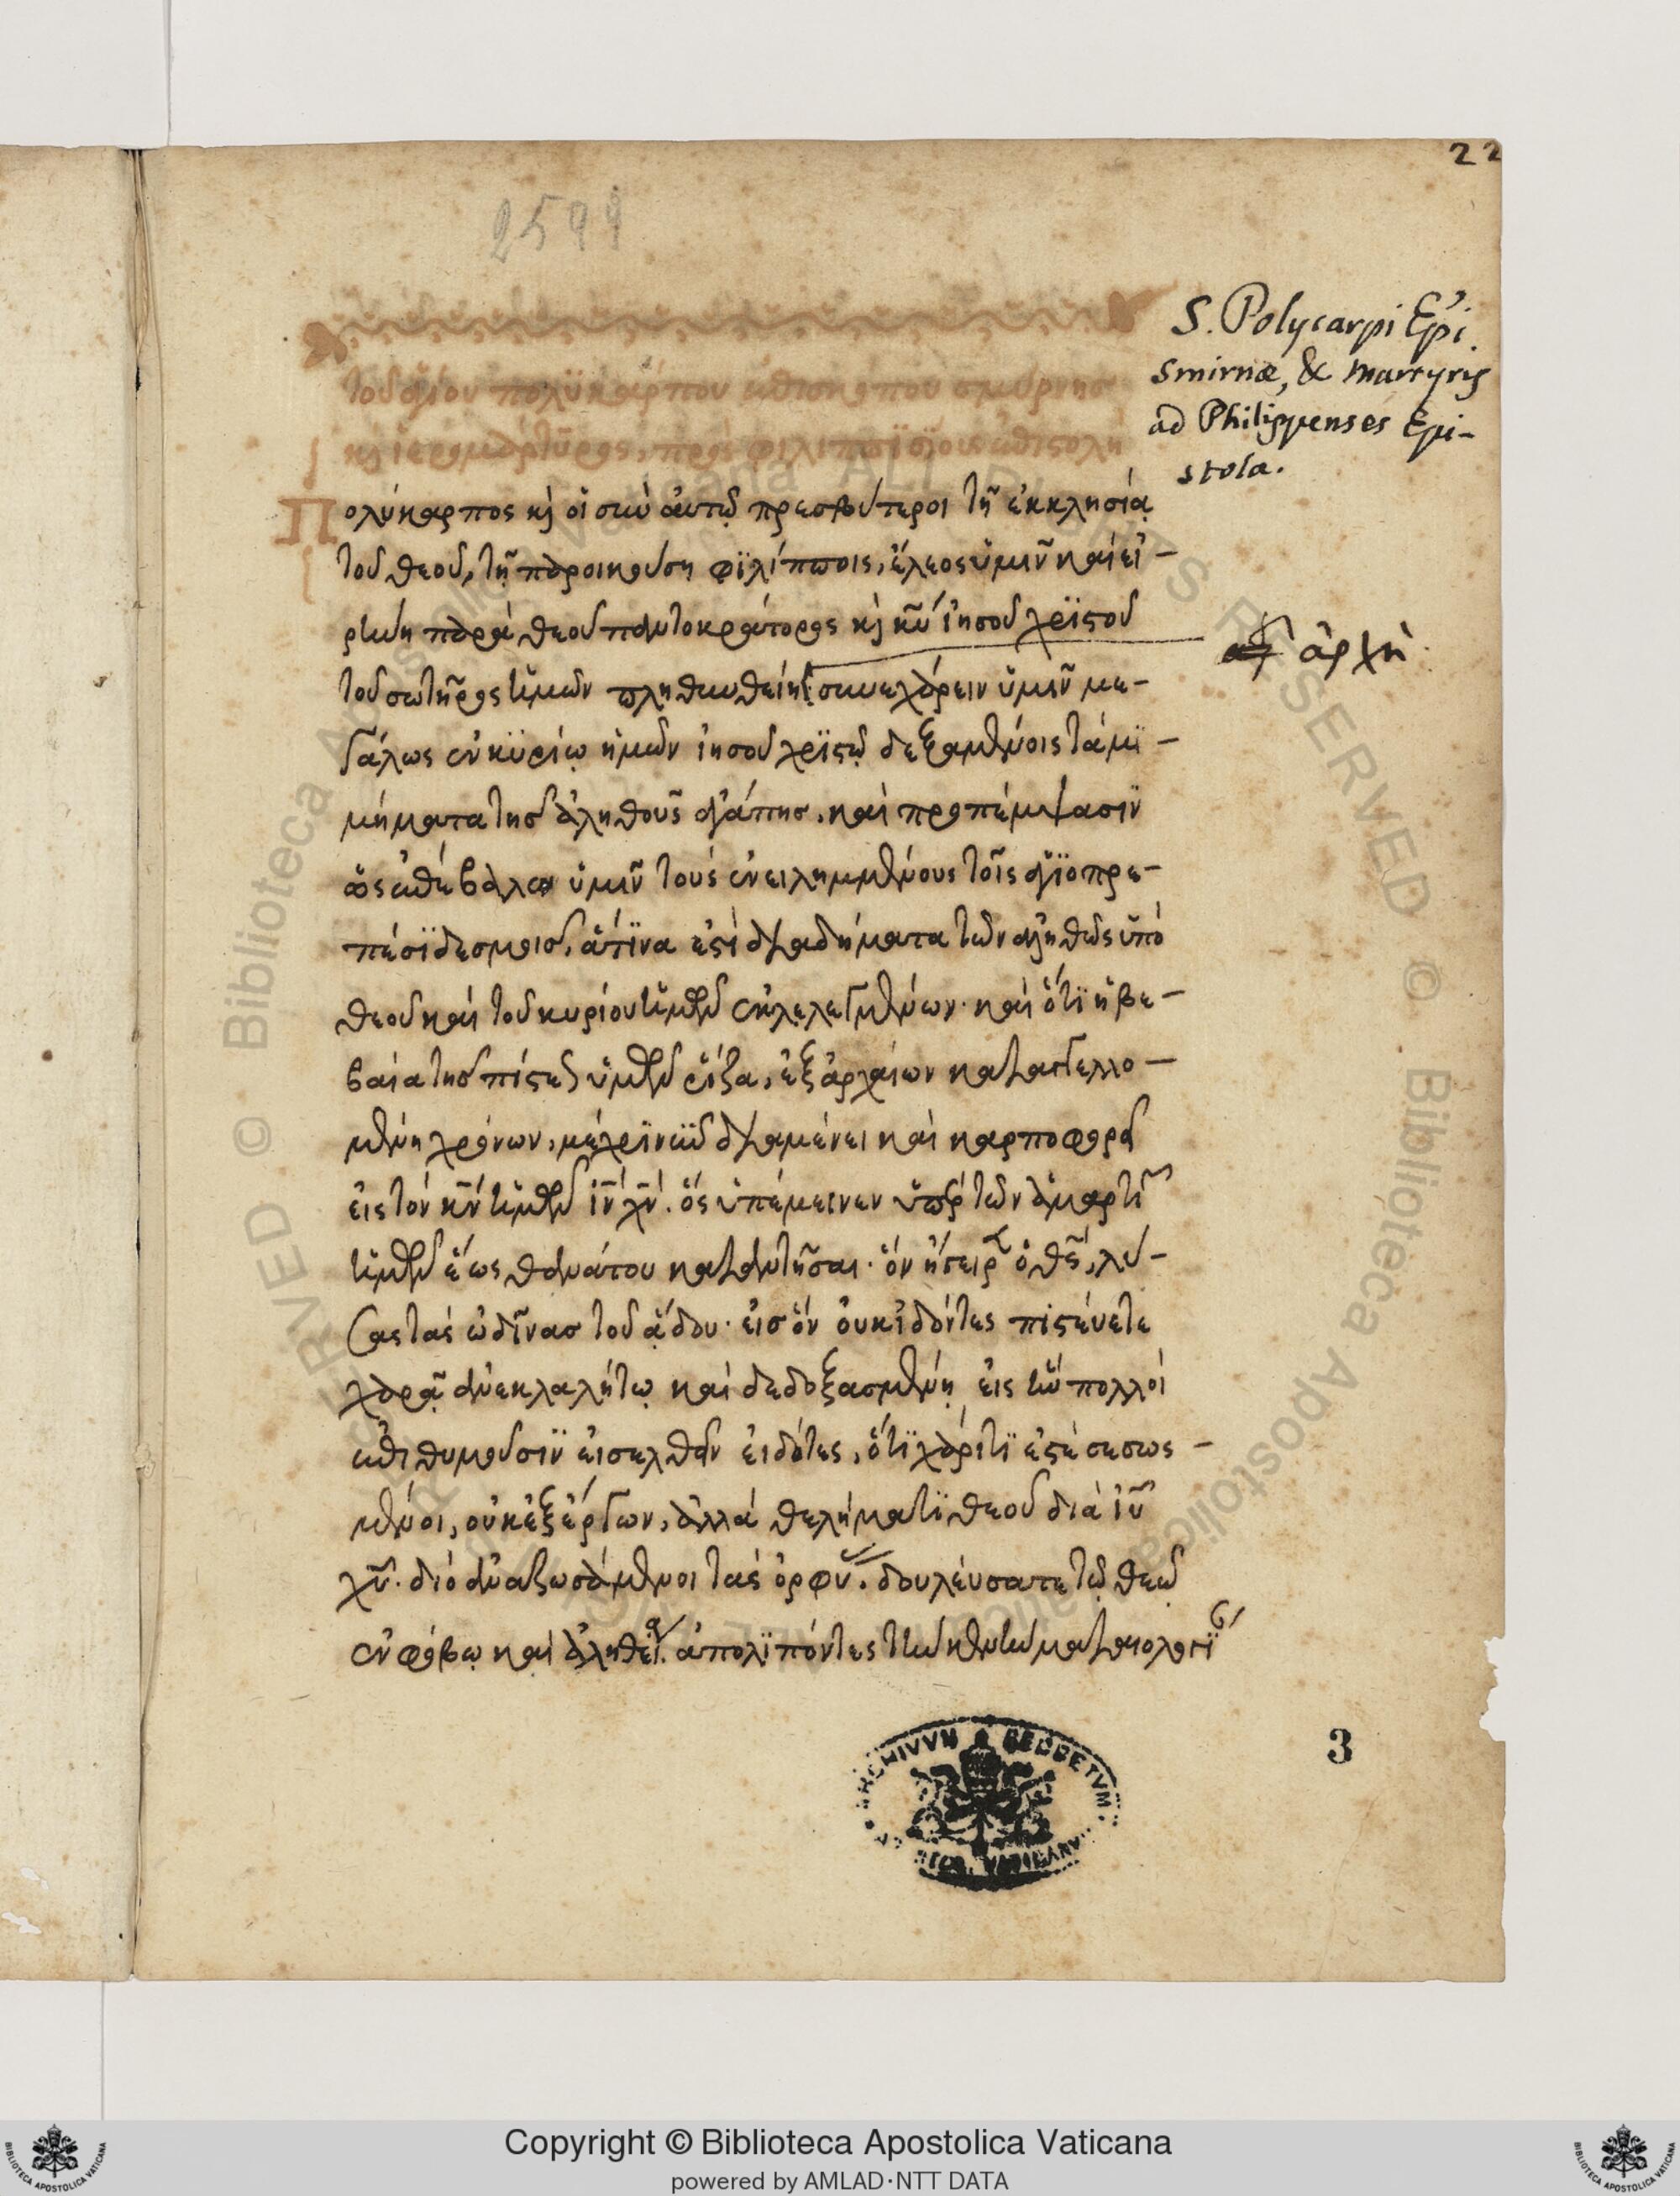 22
2599
S. Polycarpi Epi.
Smirnæ, & Martyris
ad Philippenses Epi-
stola.
τοῦ ἁγίου πολϋκάρπου ἐπισκόπου σμύρνησ
κὶ ἱερομάρτϋρος, πρὸς φιλιππϊσίους ἐπιστολή
Πολύκαρπος κὶ οἱ σὺν ἀυτῷ πρεσβύτεροι τῆ ἐκκλησίᾳ
τοῦ θεοῦ, τῆ παροικούση φϊλίπποις, ἔλεος ὑμιν καὶ εἰ-
ρήνη παρὰ θεοῦ παντοκράτορος κὶ κυ ἰησοῦ χρϊστοῦ
αρ ἀρχὴ
τοῦ σωτῆρος ἡμῶν πληθυνθείη. συνεχάρειν ὑμιν με-
γάλως ἐν κϋρίῳ ἡμῶν ἰησοῦ χρϊστῷ δεξαμένοις τὰ μϊ-
μήματα τησ ἀληθοῦς ἀγάπησ. καὶ προπέμψασϊν
ὡς ἐπέβαλεν ὑμιν τοὺς ἐνειλημμένους τοῖς ἁγϊοπρε-
πέσϊ δεσμοισ, ἅτϊνα ἐστὶ διαδήματα τῶν ἀληθῶς ὑπὸ
θεοῦ καὶ τοῦ κυρίου ἡμῶν ἐκλελεγμένων. καὶ ὅτϊ ἡ βε-
βαία τησ πίστεως ὑμῶν ῥίζα, ἐξ ἀρχαίων καταγγελλο-
μένη χρόνων, μέχρϊ νῦν διαμένει καὶ καρποφορεῖ
εἰς τὸν κν ἡμῶν ιν χν. ὃς ὑπέμεινεν ὑπὲρ τῶν ἁμαρτι
ἡμῶν ἕως θανάτου καταντῆσαι. ὃν ἤγειρε ὁ θς, λύ-
σας τὰς ὠδῖνασ τοῦ ᾅδου. εἰσ ὃν οὐκ ἰδόντες πιστεύετε
χαρᾷ ἀνεκλαλήτῳ καὶ δεδοξασμένῃ εἰς ἣν πολλοὶ
ἐπιθυμοῦσϊν εἰσελθεῖν εἰδότες, ὅτϊ χάρϊτϊ ἐστὲ σεσως-
μένοι, οὐκ ἐξ ἔργων, ἀλλὰ θελήματϊ θεοῦ διὰ ιυ
χυ. διὸ ἀναζωσάμενοι τὰς ὀρφυ. δουλεύσατε τῷ θεῷ
ἐν φόβῳ καὶ ἀληθεί. ἀπολϊπόντες τὴν κενὴν ματαιολογϊ
3
ARCHIVVM SECRETVM
Copyright © Biblioteca Apostolica Vaticana
powered by AMLAD·NTT DATA